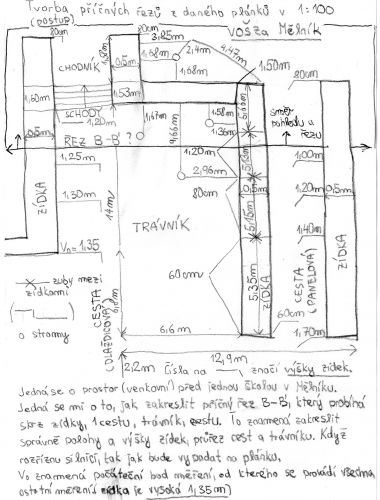 Tvorba příčných řezů z daného plánků v 1:100
(postup)
VOŠZA Mělník
80cm
80cm
3,85m
2,4m
4,47m
1,68m
1,68m
1,50m
CHODNÍK
20cm
1,60m
SCHODY
1,53m
1,20m
1,67m
4,66m
1,58m
1,36m
směr
pohledu u
řezu
0,5m
ŘEZ B-B'?
1,25m
1,20m
1,00m
2,96m
80cm
0,5m
1,20m
0,5m
1,30m
ZÍDKA
14m
TRÁVNÍK
5,15m
1,40m
Vo = 1,35
zuby mezi
zídkami
60cm
5,35m
ZÍDKA
CESTA
(PANELOVÁ)
ZÍDKA
CESTA
(DLAŽDICOVÁ)
o stromy
60cm
6,6m
1,70m
12,9m
2,2m Čísla na značí výšky zídek.
Jedná se o prostor (venkovní) před jednou školou v Mělníku.
Jedná se mi o to, jak zakreslit příčný řez B-B', který probíhá
skrz zídky, 1 cestu, trávník, cestu. To znamená zakreslit
správně polohy a výšky zídek, průřez cest a trávníku. Když
rozříznu silnici, tak jak bude vypadat na plánku.
Vo znamená počáteční bod měření, od kterého se provádí všechna
ostatní měření (zídka je vysoká 1,35m)